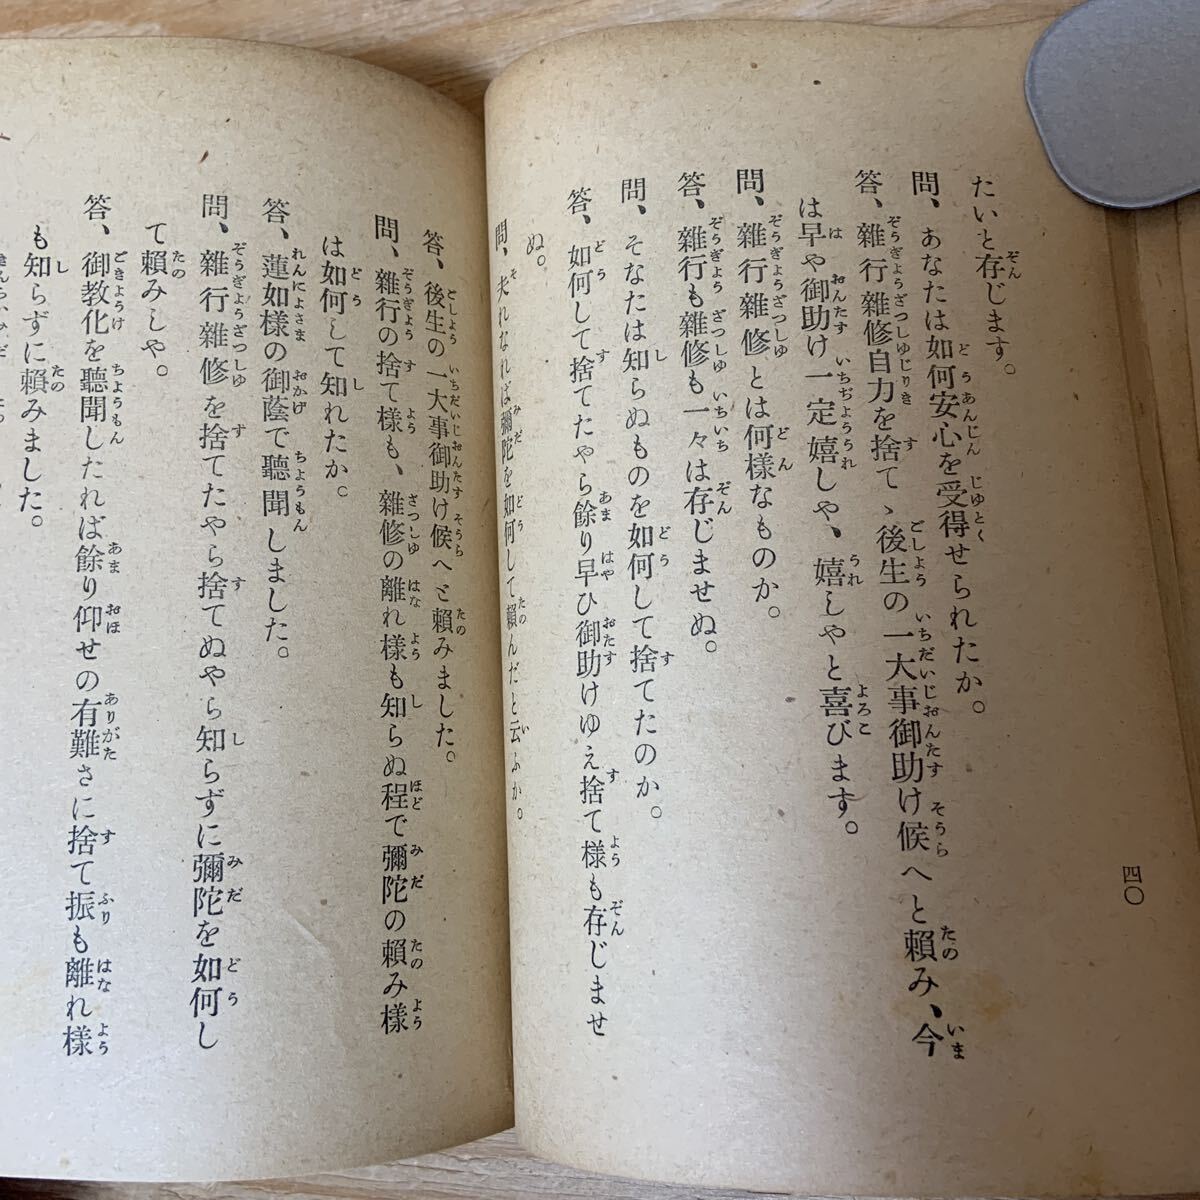 たいと存じます。
問、あなたは如何安心を受得せられたか。
答、雜行雜修自力を捨てゝ後生の一大事御助け候へと賴み、今
は早や御助け一定嬉しや、嬉しやと喜びます。
問、雜行雜修とは何樣なものか。
答、雜行も雜修も一々は存じませぬ。
問、そなたは知らぬものを如何して捨てたのか。
答、如何して捨てたやら餘り早ひ御助けゆえ捨て樣も存じませ
ぬ。
問、夫れなれば彌陀を如何して賴んだと云ふか。
四〇
答、後生の一大事御助け候へと賴みました。
問、雜行の捨て樣も、雜修の離れ樣も知らぬ程で彌陀の賴み樣
は如何して知れたか。
答、蓮如樣の御蔭で聽聞しました。
問、雜行雜修を捨てたやら捨てぬやら知らずに彌陀を如何し
て賴みしや。
答、御教化を聽聞したれば餘り仰せの有難さに捨て振も離れ樣
も知らずに賴みました。